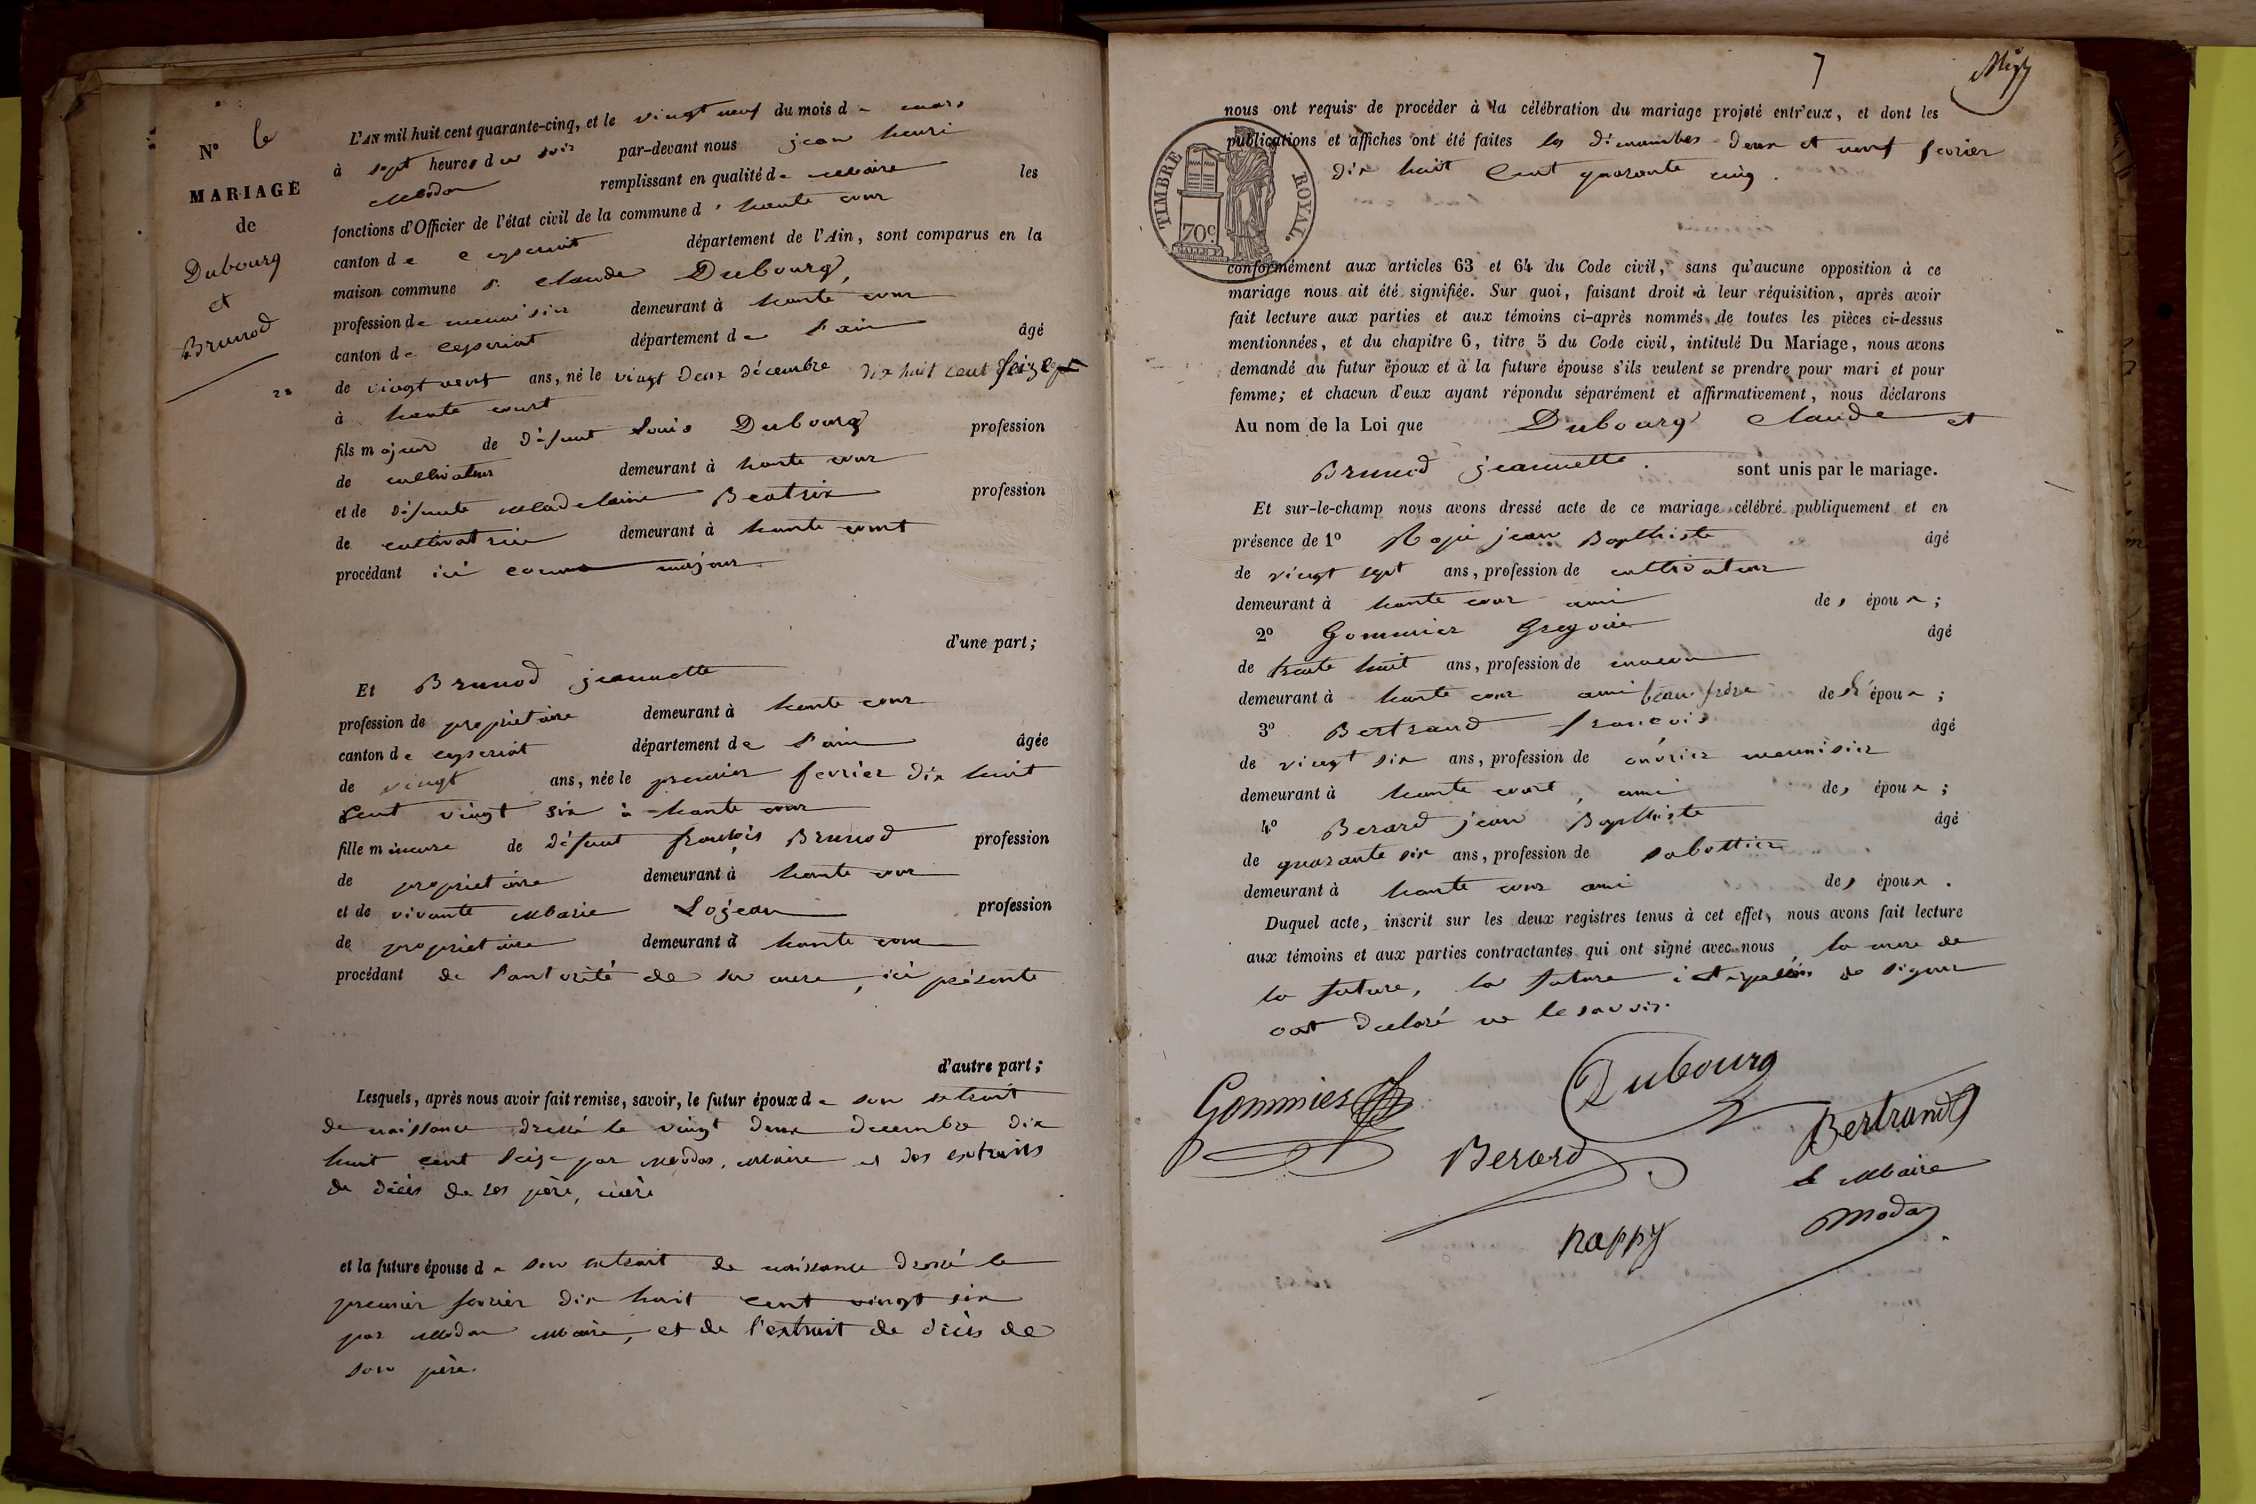 N° 6
MARIAGE
de
Dubourg
et
Brunod
L'AN mil huit cent quarante-cinq, et le vingt neuf du mois de mars
à sept heures du soir par-devant nous jean henri
Modas remplissant en qualité de Maire les
fonctions d'Officier de l'état civil de la commune d' haute cour
canton de ceyseriat département de l'Ain, sont comparus en la
maison commune Sr claude Dubourg,
profession de menuisier demeurant à haute cour
canton de ceyseriat département de l'ain âgé
de vingt neuf ans, né le vingt deux décembre dix huit cent seize
à haute court
fils majeur de défunt Louis Dubourg profession
de cultivateur demeurant à haute cour
et de défunte Madelaine Beatrix profession
de cultivatrice demeurant à haute court
procédant ici comme majeur.
d'une part;
Et Brunod jeannette
profession de proprietaire demeurant à haute cour
canton de ceyseriat département de l'ain âgée
de vingt ans, née le premier fevrier dix huit
Cent vingt six à haute cour
fille mineure de défunt françois Brunod profession
de proprietaire demeurant à haute cour
et de vivante Marie Lojean profession
de proprietaire demeurant à haute cour
procédant de l'autorité de sa mere, ici présente
d'autre part;
Lesquels, après nous avoir fait remise, savoir, le futur époux de son extrait
de naissance dressé le vingt deux decembre dix
huit cent seize par Modas, Maire et des extraits
de décès de ses père, mère
et la future épouse de son extrait de naissance dressé le
premier fevrier dix huit cent vingt six
par Modas Maire, et de l'extrait de décès de
son père.
7
nous ont requis de procéder à la célébration du mariage projeté entr'eux, et dont les
publications et affiches ont été faites les dimanches deux et neuf fevrier
dix huit Cent quarante cinq.
TIMBRE ROYAL.
70c
conformément aux articles 63 et 64 du Code civil, sans qu'aucune opposition à ce
mariage nous ait été signifiée. Sur quoi, faisant droit à leur réquisition, après avoir
fait lecture aux parties et aux témoins ci-après nommés de toutes les pièces ci-dessus
mentionnées, et du chapitre 6, titre 5 du Code civil, intitulé Du Mariage, nous avons
demandé au futur époux et à la future épouse s'ils veulent se prendre pour mari et pour
femme; et chacun d'eux ayant répondu séparément et affirmativement, nous déclarons
Au nom de la Loi que Dubourg claude et
Brunod jeannette. sont unis par le mariage.
Et sur-le-champ nous avons dressé acte de ce mariage célébré publiquement et en
présence de 1° jean Bapthiste âgé
de vingt sept ans, profession de cultivateur
demeurant à haute cour ami des époux;
2° Gommier Gregoire âgé
de trente huit ans, profession de macon
demeurant à haute cour ami beau frère de l'époux;
3° Bertrand francois âgé
de vingt six ans, profession de ouvrier menuisier
demeurant à haute court, ami des époux;
4° Berard jean Bapthiste âgé
de quarante six ans, profession de sabottier
demeurant à haute cour ami des époux.
Duquel acte, inscrit sur les deux registres tenus à cet effet, nous avons fait lecture
aux témoins et aux parties contractantes qui ont signé avec nous, la mere de
la future, la future de signer
ont declaré ne le savoir.
Gommier
Dubourg
Bertrand
Berard
le Maire
Modas
nappy